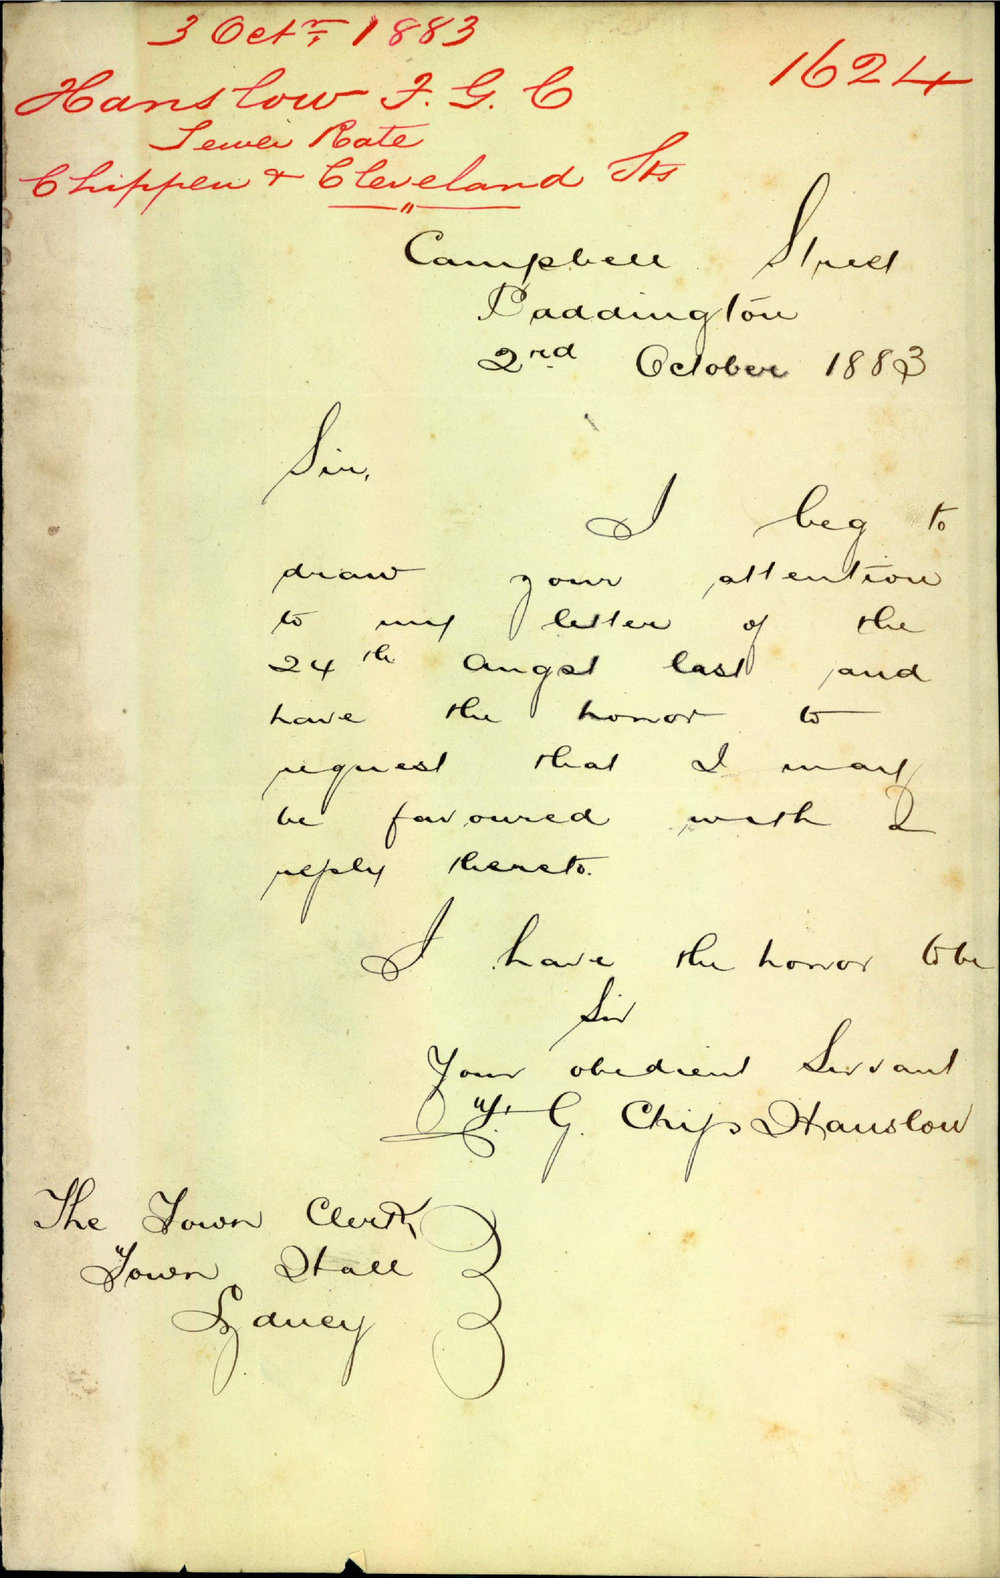 3 Octr 1883
1624
Hanslow F. G. C
Sewer Rate
Chippen & Cleveland Sts
Campbell Street
Paddington
2nd October 1883
Sir,
I beg to
draw your attention
to my letter of the
24th Augst last and
have the honor to
request that I may
be favoured with a
reply thereto.
I have the honor to be
Sir
Your obedient Servant
F. G. Chips Hanslow
The Town Clerk
Town Hall
Sydney